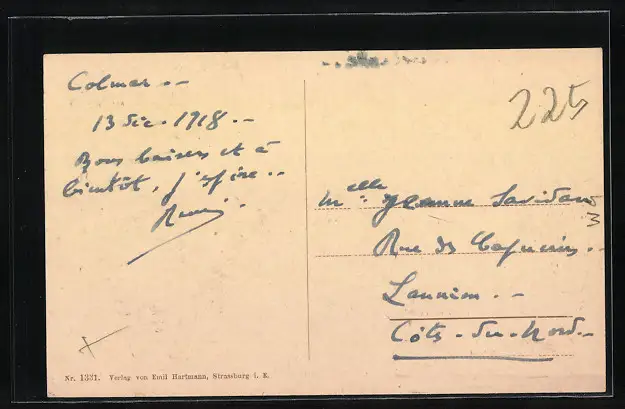 Colmar --
13 Déc. 1918 --
Bons baisers et à
bientôt, j'espère --
225
Melle Jeanne
Rue des Capucins --
Lannion --
Côtes-du-Nord --
Nr. 1331. Verlag von Emil Hartmann, Strassburg i. E.